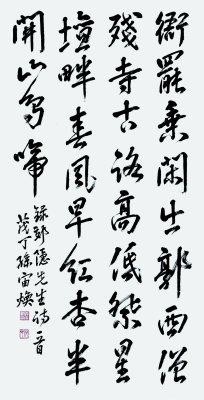 衙罷乘閑出郭西僧
殘寺古路高低祭星
壇畔春風早紅杏半
開山鳥啼
錄鄭隱先生詩一首
孫宙煥